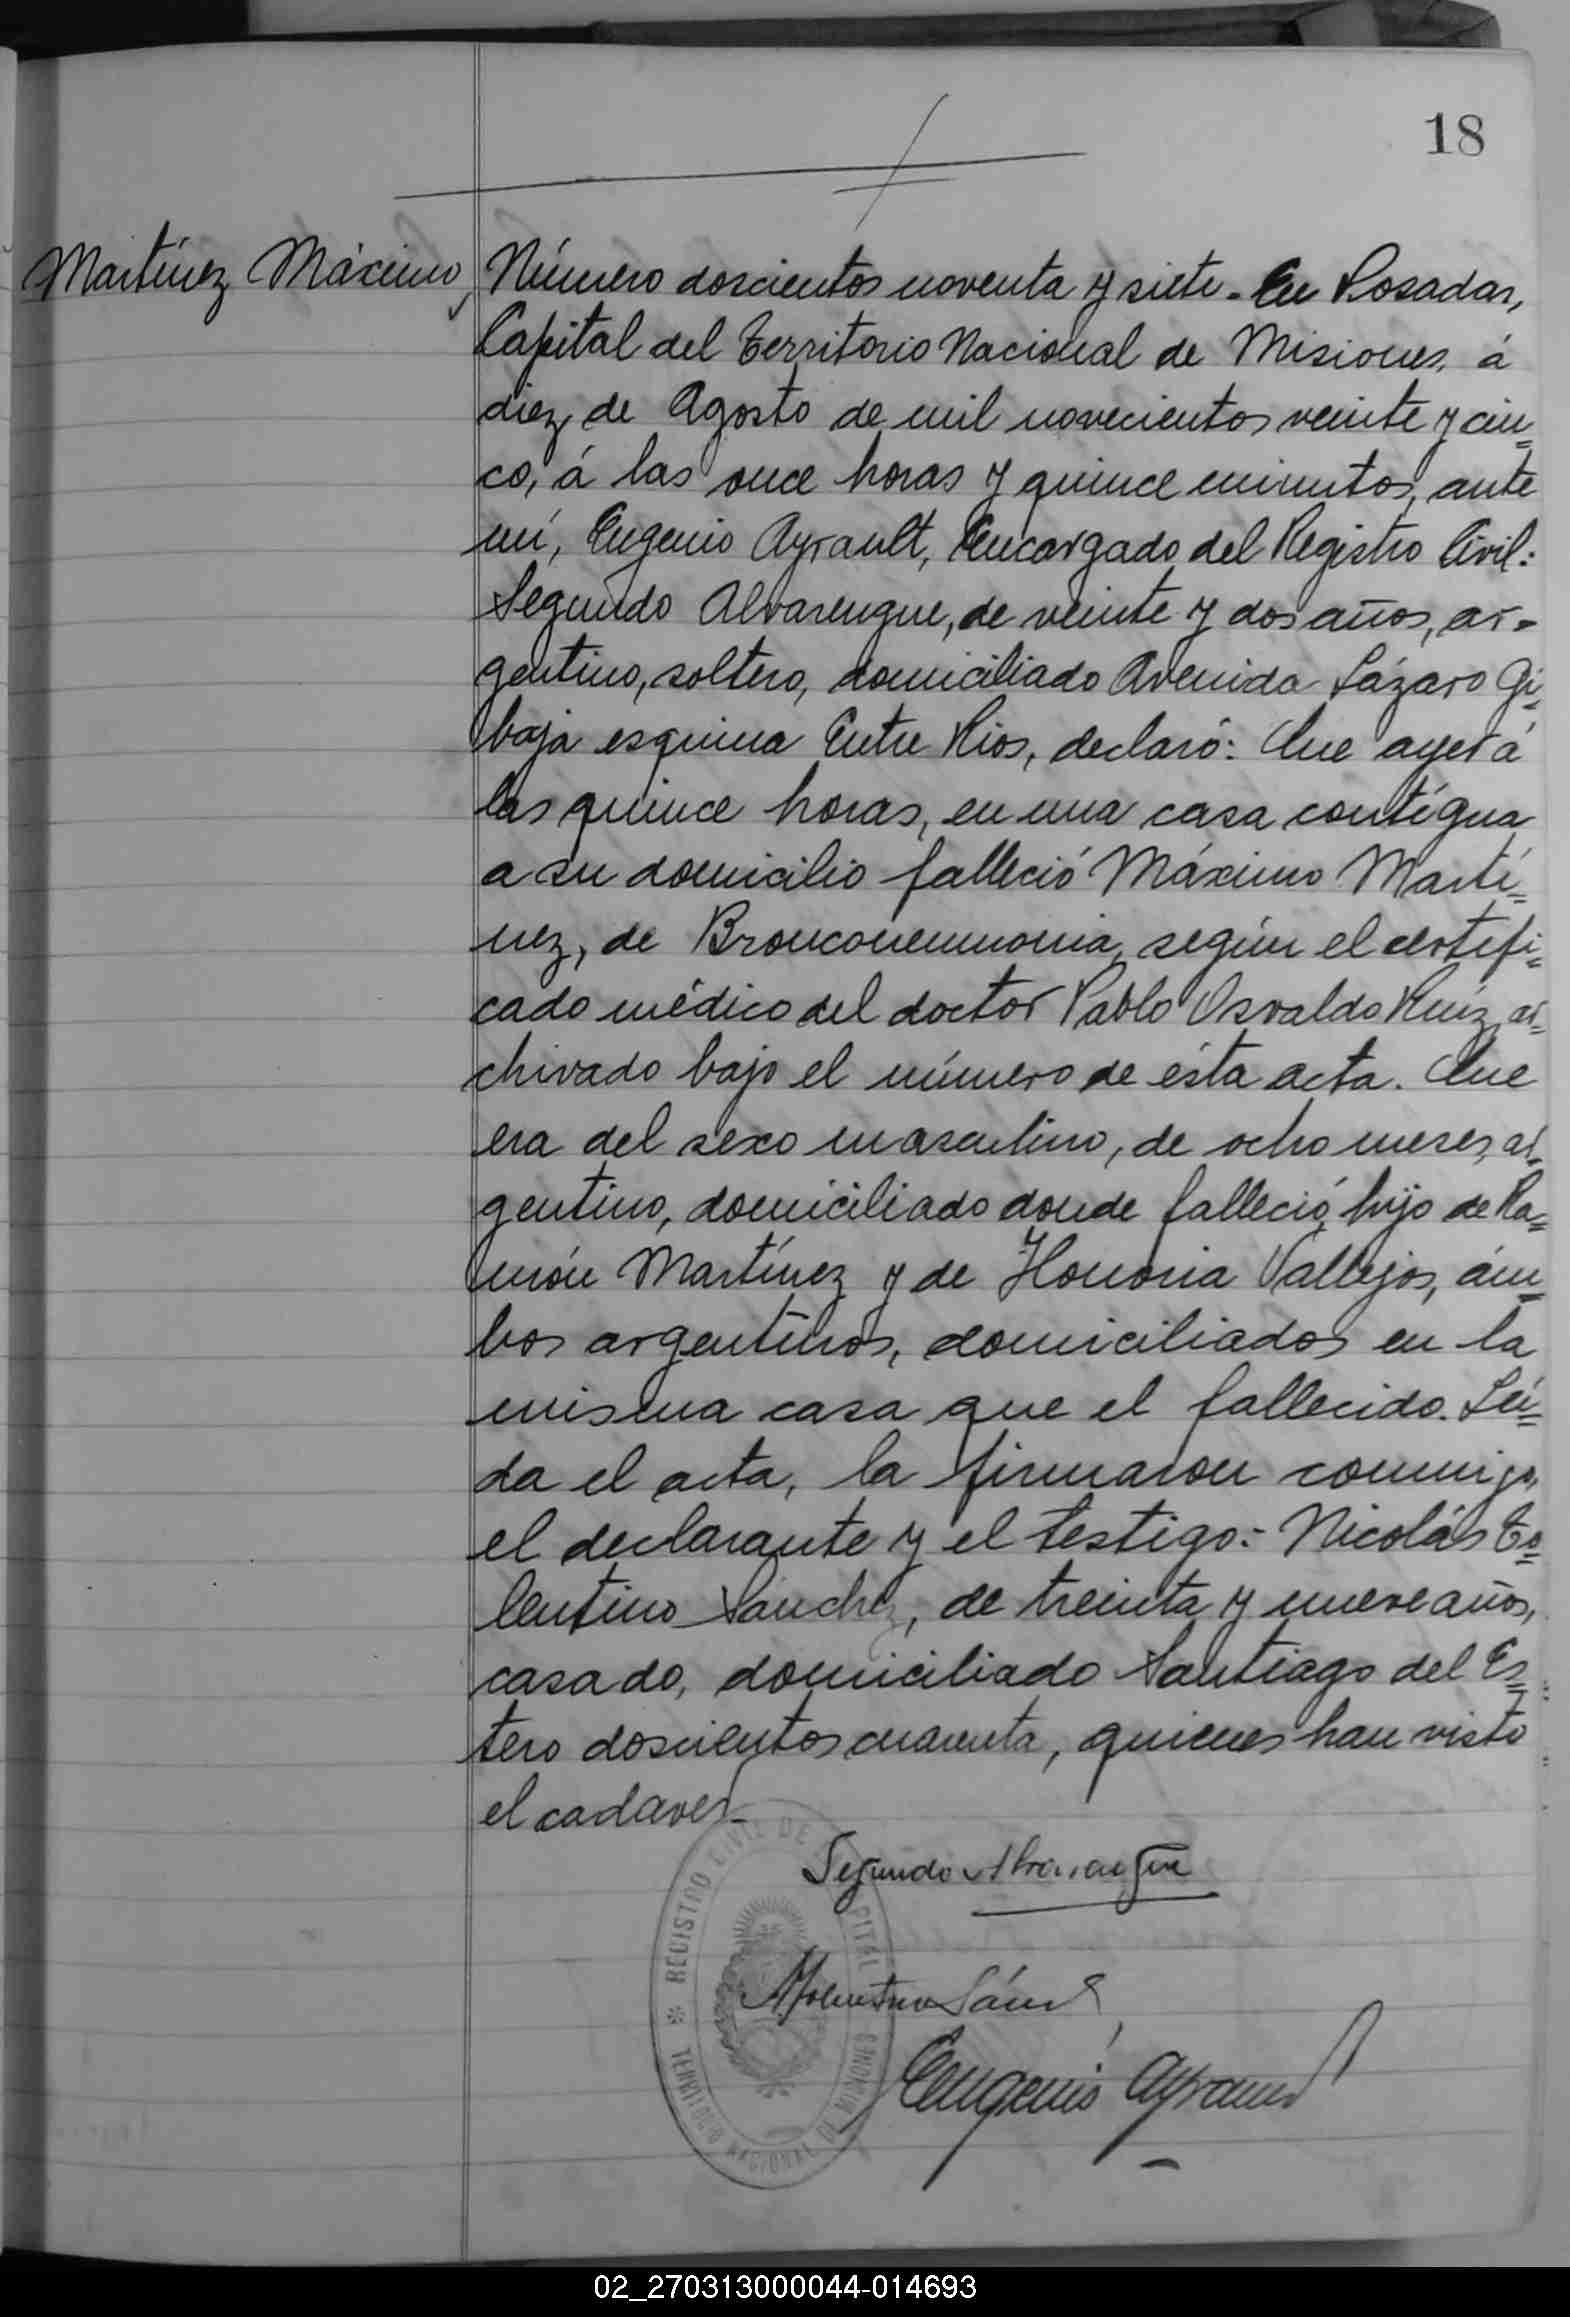 18
Martínez Máximo,
Número doscientos noventa y siete. En Posadas,
Capital del Territorio Nacional de Misiones, á
diez de Agosto de mil novecientos veinte y cin=
co, á las once horas y quince minutos, ante
mí, Eugenio Ayrault, Encargado del Registro Civil:
Segundo Alvarengue, de veinte y dos años, ar=
gentino, soltero, domiciliado Avenida Lázaro Gi=
baja esquina Entre Rios, declaró: Que ayer á
las quince horas, en una casa contígua
a su domicilio falleció Máximo Martí=
nez, de Bronconeumonia, según el certifi=
cado médico del doctor Pablo Osvaldo Ruiz, ar=
chivado bajo el número de ésta acta. Que
era del sexo masculino, de ocho meses, ar=
gentino, domiciliado donde falleció, hijo de Ra=
món Martínez y de Honoria Vallejos, ám=
bos argentinos, domiciliados en la
misma casa que el fallecido. Leí=
da el acta, la firmaron conmigo,
el declarante y el testigo:- Nicolás To=
lentino Sánchez, de treinta y nueve años,
casado, domiciliado Santiago del Es=
tero doscientos cuarenta, quienes han visto
el cadaver.-
Segundo Alvarengue
Sánchez
Eugenio Ayrault
REGISTRO CIVIL DE PITAL
TERRITORIO NACIONAL DE MISIONES
02_270313000044-014693